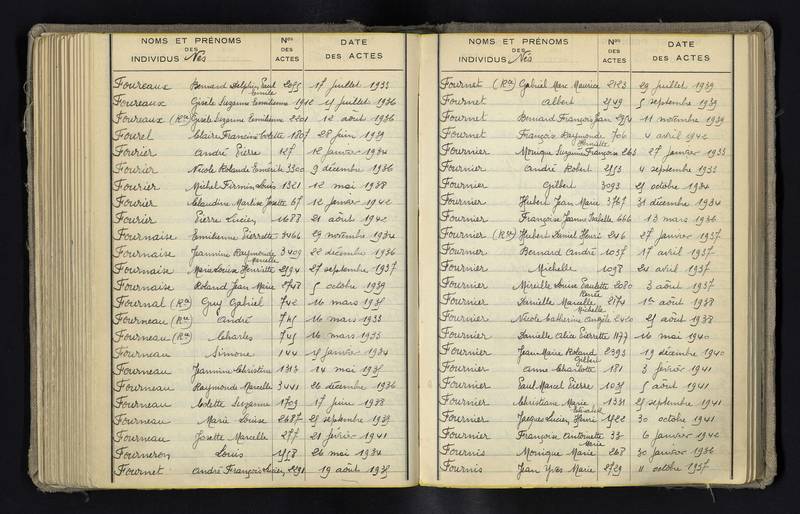 NOMS ET PRÉNOMS
DES
INDIVIDUS Nés
Nos
DES
ACTES
DATE
DES ACTES
Foureaux Bernard Delphin Paul 2095 17 juillet 1933
Emile
Foureaux Gisèle Suzanne Emilienne 1912 11 juillet 1936
Foureaux (Rn) Gisèle Suzanne Emilienne 2201 12 août 1936
Fourel Claire Francine Colette 1807 28 juin 1939
Fourier André Pierre 127 12 janvier 1934
Fourier Nicole Rolande 3300 9 décembre 1936
Fourier Michel Firmin Louis 1321 12 mai 1938
Fourier Claudine Martine Josette 67 12 janvier 1942
Fourier Pierre Lucien 1688 21 août 1942
Fournaise Emilienne Pierrette 3466 29 novembre 1934
Fournaise Jeannine Raymonde 3409 22 décembre 1936
Marcelle
Fournaise Marie Louise Henriette 2594 27 septembre 1937
Fournaise Roland Jean Marie 2748 5 octobre 1939
Fournal (Rn) Guy Gabriel 742 16 mars 1935
Fourneau (Rn) André 745 16 mars 1933
Fourneau (Rn) Charles 745 16 mars 1933
Fourneau Simone 144 15 janvier 1934
Fourneau Jeannine Christine 1313 14 mai 1935
Fourneau Raymonde Marcelle 3441 26 décembre 1936
Fourneau Colette Suzanne 1709 17 juin 1938
Fourneau Marie Louise 2687 25 septembre 1939
Fourneau Josette Marcelle 277 21 février 1941
Fourneron Louis 1458 26 mai 1934
Fournet André François Lucien 2291 19 août 1935
NOMS ET PRÉNOMS
DES
INDIVIDUS Nés
Nos
DES
ACTES
DATE
DES ACTES
Fournet (Rn) Gabriel Marc Maurice 2123 29 juillet 1939
Fournet Albert 2549 5 septembre 1939
Fournet Bernard François Jean 2954 11 novembre 1939
Fournet François Raymonde 706 4 avril 1942
Henriette
Fournier Monique Suzanne Françoise 263 27 janvier 1933
Fournier André Robert 2553 4 septembre 1933
Fournier Gilbert 3093 25 octobre 1934
Fournier Hubert Jean Marie 3767 31 décembre 1934
Fournier Françoise Jeanne Isabelle 666 13 mars 1936
Fournier (Rn) Hubert Daniel Henri 246 27 janvier 1937
Fournier Bernard André 1037 17 avril 1937
Fournier Michelle 1098 24 avril 1937
Fournier Mireille Louise Paulette 2080 3 août 1937
Renée
Fournier Danielle Marcelle 2174 1er août 1938
Michelle
Fournier Nicole Catherine Angèle 2420 25 août 1938
Fournier Danielle Alice Pierrette 1177 16 mai 1940
Fournier Jean Marie Roland 2393 19 décembre 1940
Gilbert
Fournier Anne Charlotte 181 3 février 1941
Fournier Paul Marcel Pierre 1035 5 août 1941
Fournier Christiane Marie 1331 25 septembre 1941
Elisabeth
Fournier Jacques Lucien Henri 1522 30 octobre 1941
Fournier Françoise Antoinette 33 6 janvier 1942
Marie
Fournis Monique Marie 268 30 janvier 1936
Fournis Jean Yves Marie 2729 11 octobre 1937